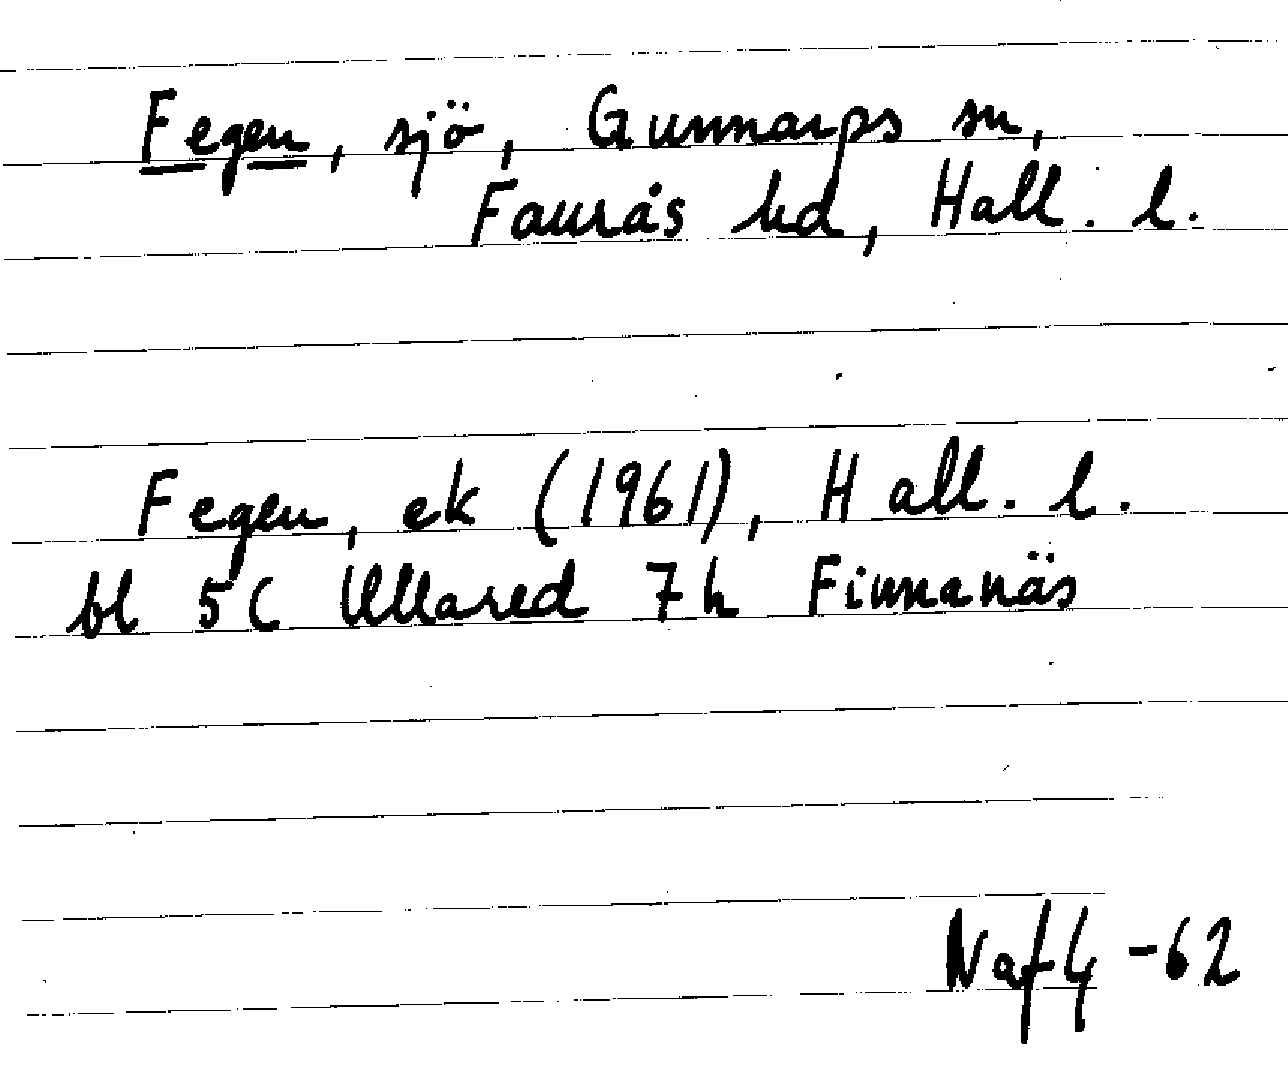 Fegen, sjö, Gunnarps sn,
Faurås hd, Hall. l.
Fegen, ek (1961), Hall. l.
bl 5C Ullared 7h Finnanäs
Naf4 -62